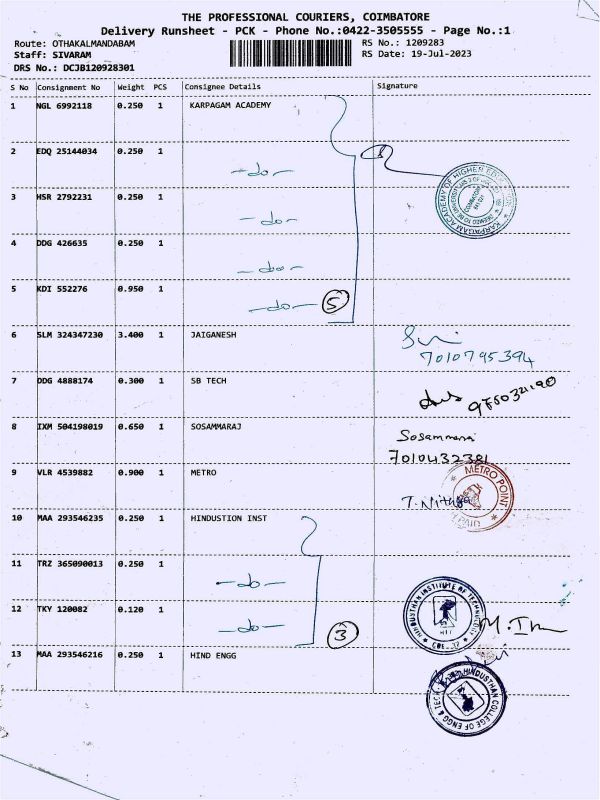 THE PROFESSIONAL COURIERS, COIMBATORE
Delivery Runsheet - PCK - Phone No.:0422-3505555 - Page No.:1
Route: OTHAKALMANDABAM RS No.: 1209283
Staff: SIVARAM RS Date: 19-Jul-2023
DRS No.: DCJB120928301
S No Consignment No Weight PCS Consignee Details Signature
1 NGL 6992118 0.250 1 KARPAGAM ACADEMY
2 EDQ 25144034 0.250 1
-do-
3 HSR 2792231 0.250 1
-do-
4 DDG 426635 0.250 1
-do-
5 KDI 552276 0.950 1
-do- 5
KARPAGAM ACADEMY OF HIGHER EDUCATION
6 SLM 324347230 3.400 1 JAIGANESH
7010795394
7 DDG 4888174 0.300 1 SB TECH
8 IXM 504198019 0.650 1 SOSAMMARAJ Sosammaraj
7010432381
9 VLR 4539882 0.900 1 METRO
METRO POINT
T. Nithya
10 MAA 293546235 0.250 1 HINDUSTION INST
11 TRZ 365090013 0.250 1
-do-
12 TKY 120082 0.120 1
-do- 3
HINDUSTHAN INSTITUTE OF TECHNOLOGY
HIT
13 MAA 293546216 0.250 1 HIND ENGG
HINDUSTHAN COLLEGE OF ENGG & TECH